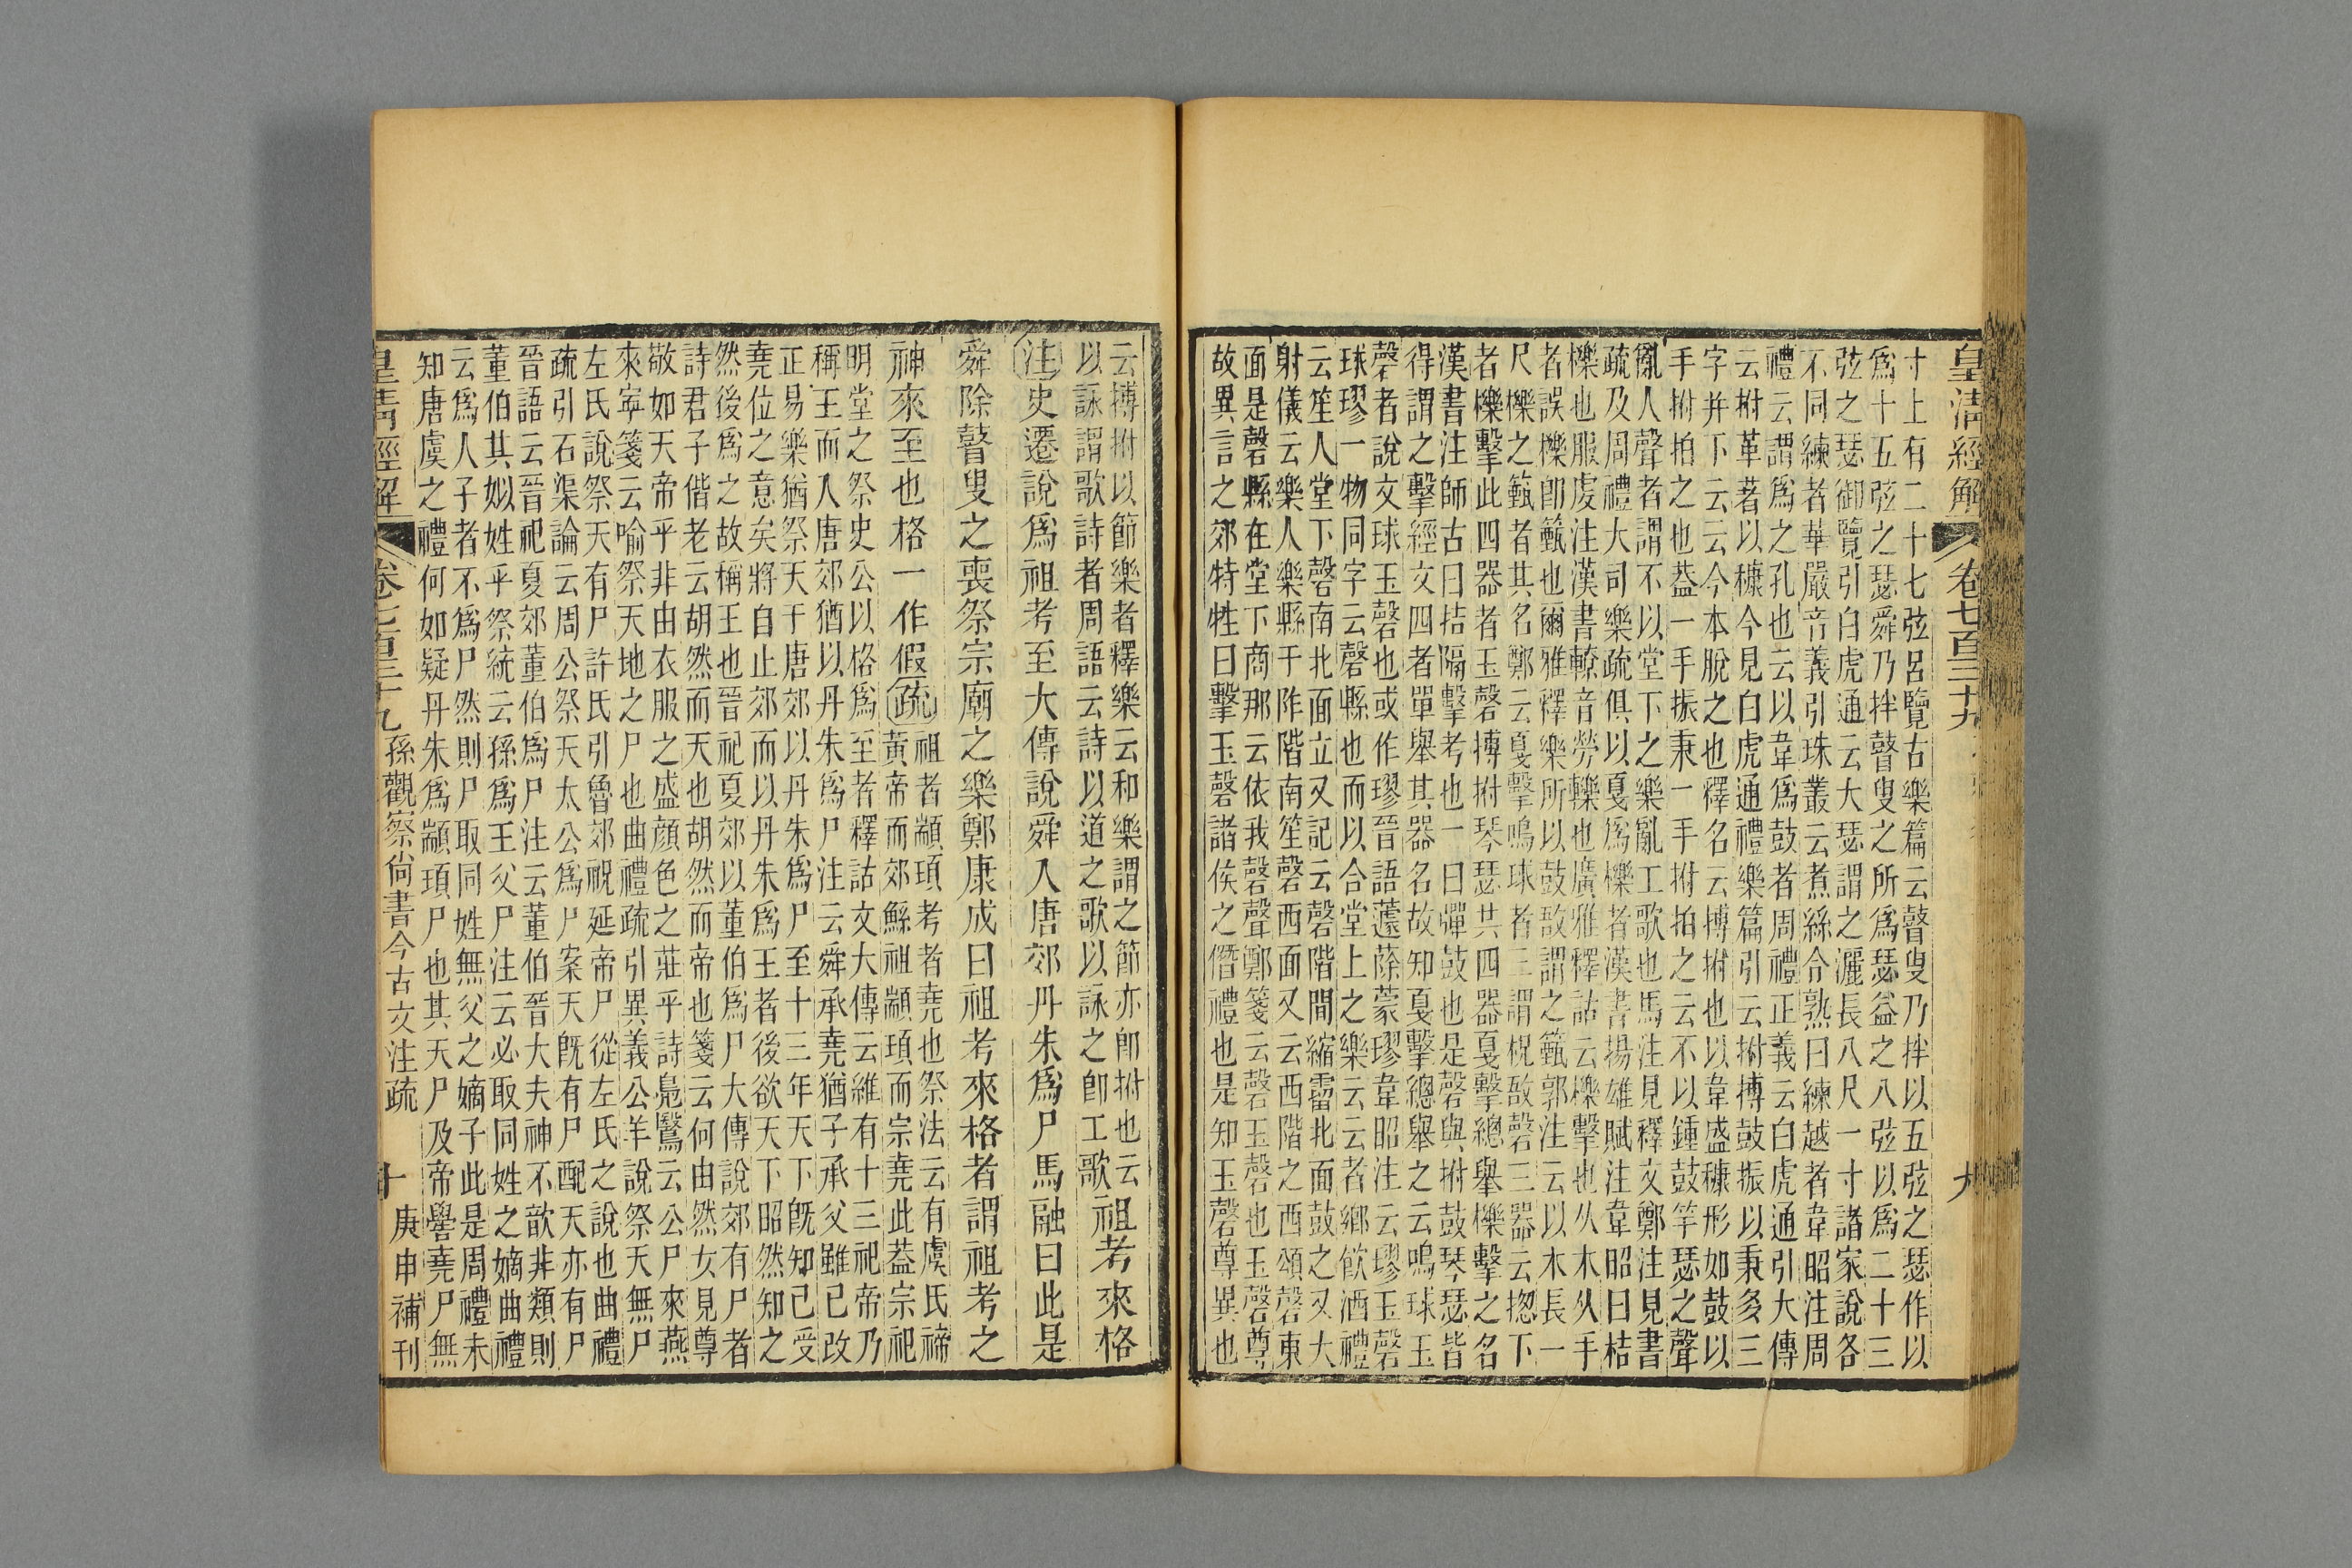 皇清經解 卷七百三十九 九
寸上有二十七弦呂覽古樂篇云瞽叟乃拌以五弦之瑟作以
爲十五弦之瑟舜乃拌瞽叟之所爲瑟益之八弦以爲二十三
弦之瑟御覽引白虎通云大瑟謂之灑長八尺一寸諸家說各
不同練者華嚴音義引珠叢云煮絲令熟曰練越者韋昭注周
禮云謂爲之孔也云以韋爲鼓者周禮正義云白虎通引大傳
云拊革著以穅今見白虎通禮樂篇引云拊搏鼓振以秉多三
字并下云云今本脫之也釋名云搏拊也以韋盛穅形如鼓以
手拊拍之也葢一手振秉一手拊拍之云不以鍾鼓竽瑟之聲
亂人聲者謂不以堂下之樂亂工歌也馬注見釋文鄭注見書
疏及周禮大司樂疏俱以戛爲櫟者漢書揚雄賦注韋昭曰桔
櫟也服虔注漢書轑音勞轢也廣雅釋詁云櫟擊也从木从手
者誤櫟卽籈也爾雅釋樂所以鼓敔謂之籈郭注云以木長一
尺櫟之籈者其名鄭云戛擊鳴球者三謂柷敔磬三器云揔下
者櫟擊此四器者玉磬搏拊琴瑟共四器戛擊總舉櫟擊之名
漢書注師古曰拮隔擊考也一曰彈鼓也是磬與拊鼓琴瑟皆
得謂之擊經文四者單舉其器名故知戛擊總舉之云鳴球玉
磬者說文球玉磬也或作璆晉語籧蒢蒙璆韋昭注云璆玉磬
球璆一物同字云磬縣也而以合堂上之樂云云者鄉飲酒禮
云笙人堂下磬南北面立又記云磬階間縮霤北面鼓之又大
射儀云樂人樂縣于阼階南笙磬西面又云西階之西頌磬東
面是磬縣在堂下商那云依我磬聲鄭箋云磬玉磬也玉磬尊
故異言之郊特牲曰擊玉磬諸侯之僭禮也是知玉磬尊異也
云搏拊以節樂者釋樂云和樂謂之節亦卽拊也云
以詠謂歌詩者周語云詩以道之歌以詠之卽工歌祖考來格
注史遷說爲祖考至大傳說舜人唐郊丹朱爲尸馬融曰此是
舜除瞽叟之喪祭宗廟之樂鄭康成曰祖考來格者謂祖考之
神來至也格一作假疏祖者顓頊考者堯也祭法云有虞氏禘
黃帝而郊鯀祖顓頊而宗堯此葢宗祀
明堂之祭史公以格爲至者釋詁文大傳云維有十三祀帝乃
稱王而人唐郊猶以丹朱爲尸注云舜承堯猶子承父雖已改
正易樂猶祭天于唐郊以丹朱爲尸至十三年天下旣知已受
堯位之意矣將自止郊而以丹朱爲王者後欲天下昭然知之
然後爲之故稱王也晉祀夏郊以董伯爲尸大傳說郊有尸者
詩君子偕老云胡然而天也胡然而帝也箋云何由然女見尊
敬如天帝乎非由衣服之盛顏色之莊乎詩鳧鷖云公尸來燕
來寧箋云喻祭天地之尸也曲禮疏引異義公羊說祭天無尸
左氏說祭天有尸許氏引魯郊祝延帝尸從左氏之說也曲禮
疏引石渠論云周公祭天太公爲尸案天旣有尸配天亦有尸
晉語云晉祀夏郊董伯爲尸注云董伯晉大夫神不歆非類則
董伯其姒姓乎祭統云孫爲王父尸注云必取同姓之嫡曲禮
云爲人子者不爲尸然則尸取同姓無父之嫡子此是周禮未
知唐虞之禮何如疑丹朱爲顓頊尸也其天尸及帝嚳堯尸無
皇清經解 卷七百三十九 孫觀察尙書今古文注疏 十 庚申補刊